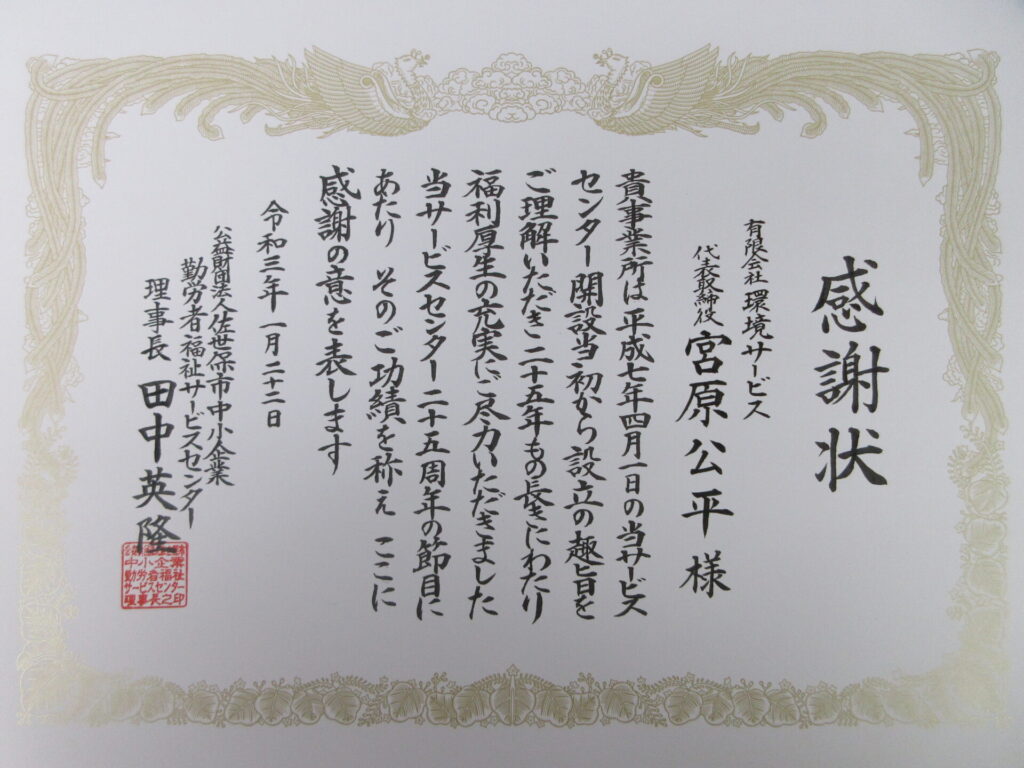 感謝状
有限会社 環境サービス
代表取締役 宮原公平 様
貴事業所は平成七年四月一日の当サービス
センター開設当初から設立の趣旨を
ご理解いただき二十五年もの長きにわたり
福利厚生の充実にご尽力いただきました
当サービスセンター二十五周年の節目に
あたり そのご功績を称え ここに
感謝の意を表します
令和三年一月二十二日
公益財団法人佐世保市中小企業
勤労者福祉サービスセンター
理事長 田中英隆